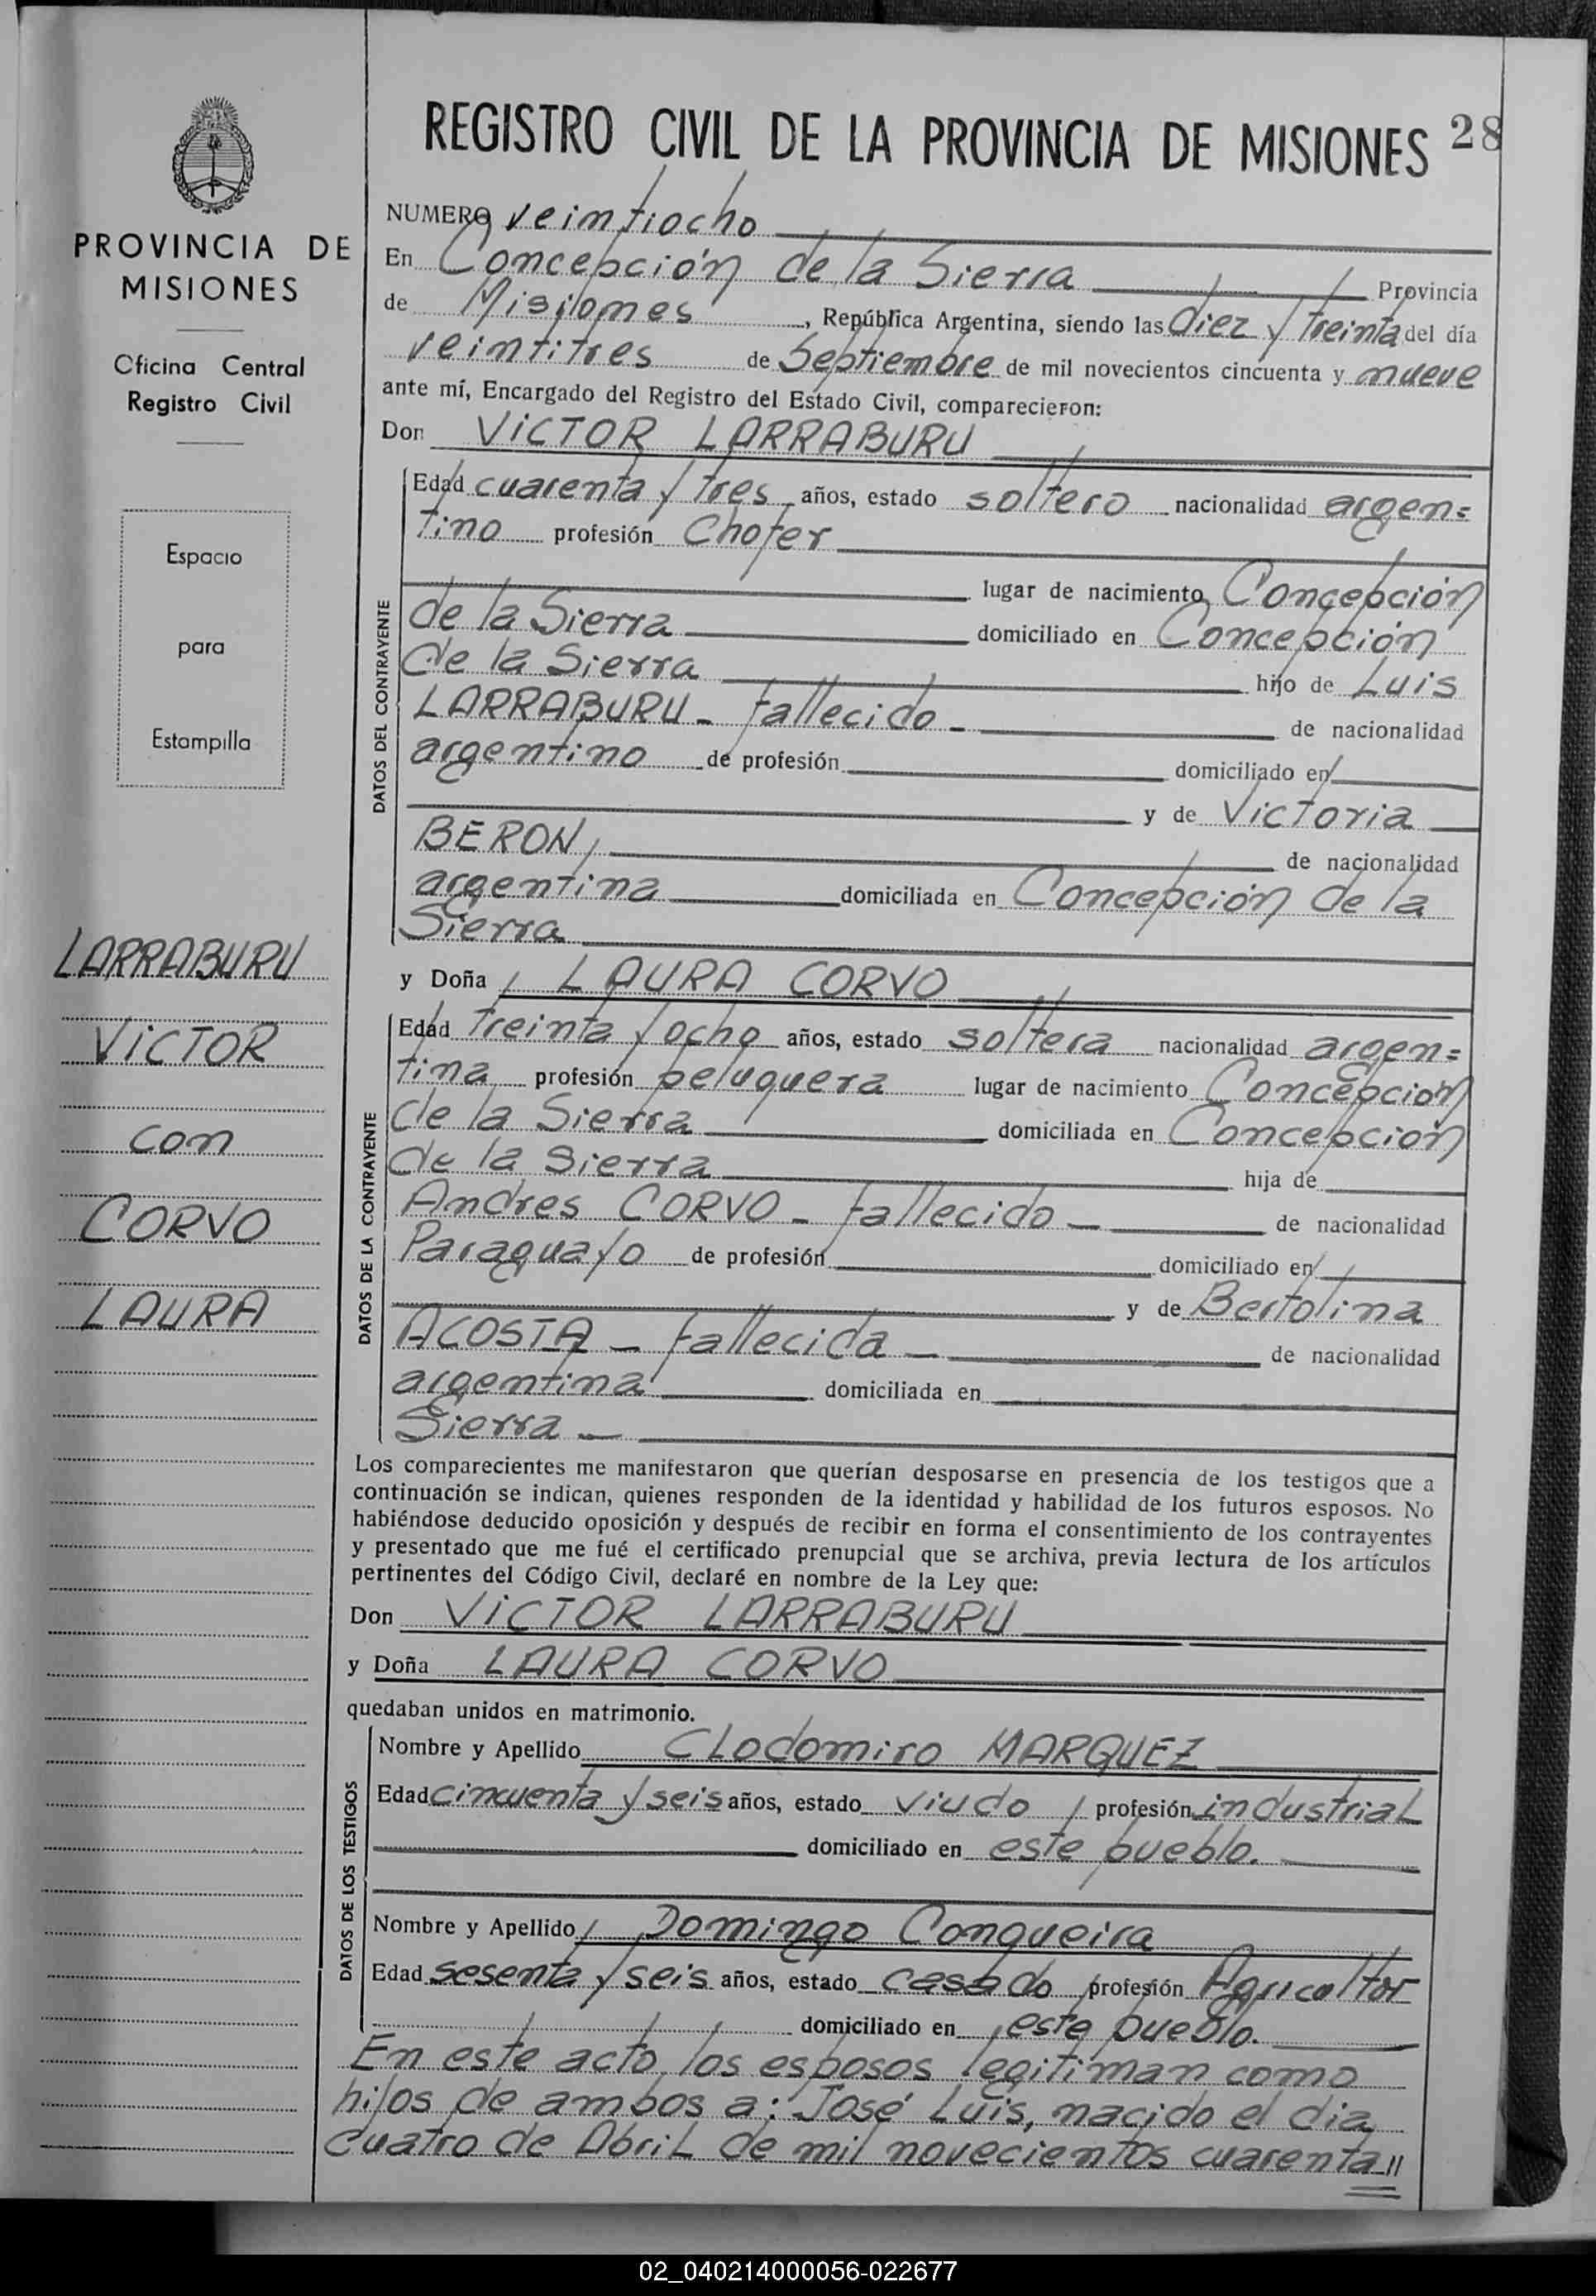 REGISTRO CIVIL DE LA PROVINCIA DE MISIONES 28
PROVINCIA DE
MISIONES
Oficina Central
Registro Civil
Espacio
para
Estampilla
LARRABURU
VICTOR
con
CORVO
LAURA
NUMERO veintiocho
En Concepción de la Sierra Provincia
de Misiones, República Argentina, siendo las diez y treinta del día
veintitres de Septiembre de mil novecientos cincuenta y nueve
ante mí, Encargado del Registro del Estado Civil, comparecieron:
Don VICTOR LARRABURU
DATOS DEL CONTRAYENTE
Edad cuarenta y tres años, estado soltero nacionalidad argen=
tino profesión Chofer
lugar de nacimiento Concepción
de la Sierra domiciliado en Concepción
de la Sierra hijo de Luis
LARRABURU - fallecido - de nacionalidad
argentino de profesión domiciliado en
y de Victoria
BERON, de nacionalidad
argentina domiciliada en Concepción de la
Sierra
y Doña LAURA CORVO
DATOS DE LA CONTRAYENTE
Edad Treinta y ocho años, estado soltera nacionalidad argen=
tina profesión peluquera lugar de nacimiento Concepción
de la Sierra domiciliada en Concepción
de la Sierra hija de
Andres CORVO - fallecido - de nacionalidad
Paraguayo de profesión domiciliado en
y de Bertolina
ACOSTA - fallecida - de nacionalidad
argentina domiciliada en
Sierra -
Los comparecientes me manifestaron que querían desposarse en presencia de los testigos que a
continuación se indican, quienes responden de la identidad y habilidad de los futuros esposos. No
habiéndose deducido oposición y después de recibir en forma el consentimiento de los contrayentes
y presentado que me fué el certificado prenupcial que se archiva, previa lectura de los artículos
pertinentes del Código Civil, declaré en nombre de la Ley que:
Don VICTOR LARRABURU
y Doña LAURA CORVO
quedaban unidos en matrimonio.
DATOS DE LOS TESTIGOS
Nombre y Apellido CLodomiro MARQUEZ
Edad cincuenta y seis años, estado viudo profesión industrial
domiciliado en este pueblo.
Nombre y Apellido Domingo Conqueira
Edad sesenta y seis años, estado casado profesión Agricultor
domiciliado en este pueblo.
En este acto los esposos legitiman como
hijos de ambos a: José Luis, nacido el dia
cuatro de Abril de mil novecientos cuarenta //
02_040214000056-022677